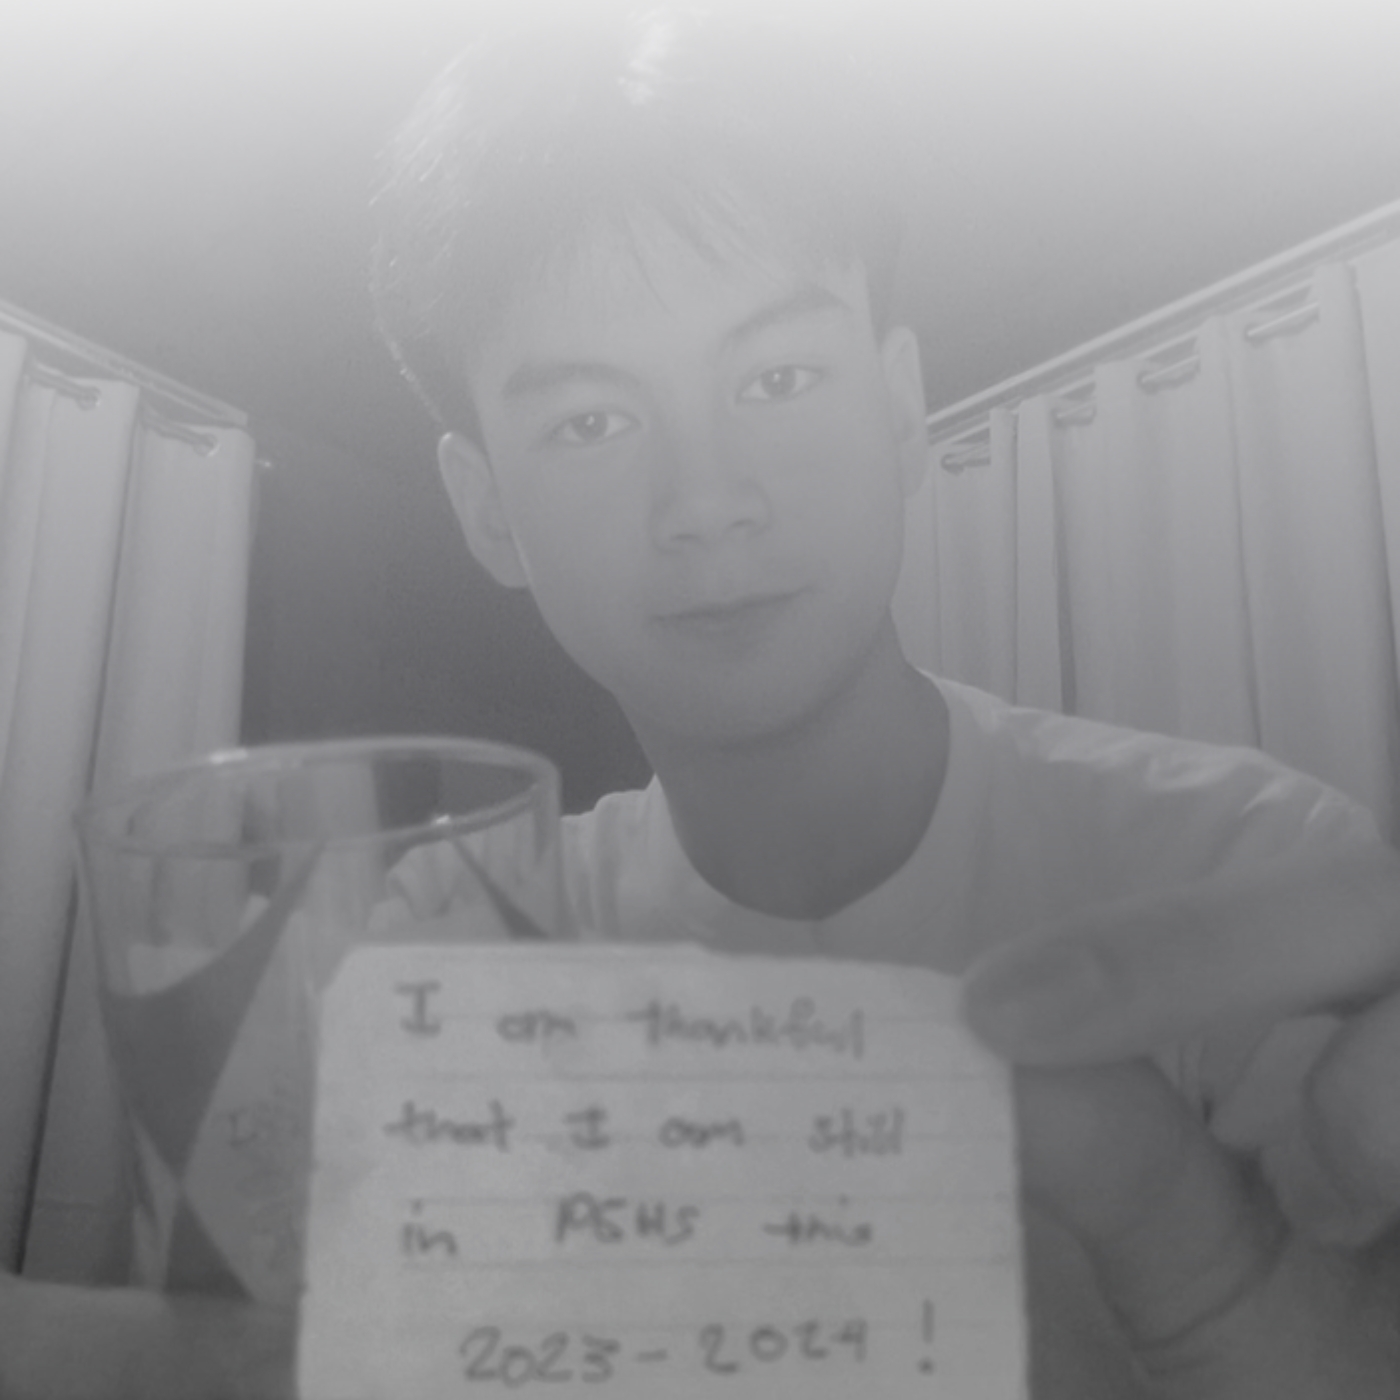 I am thankful
that I am still
in PSHS this
2023-2024 !